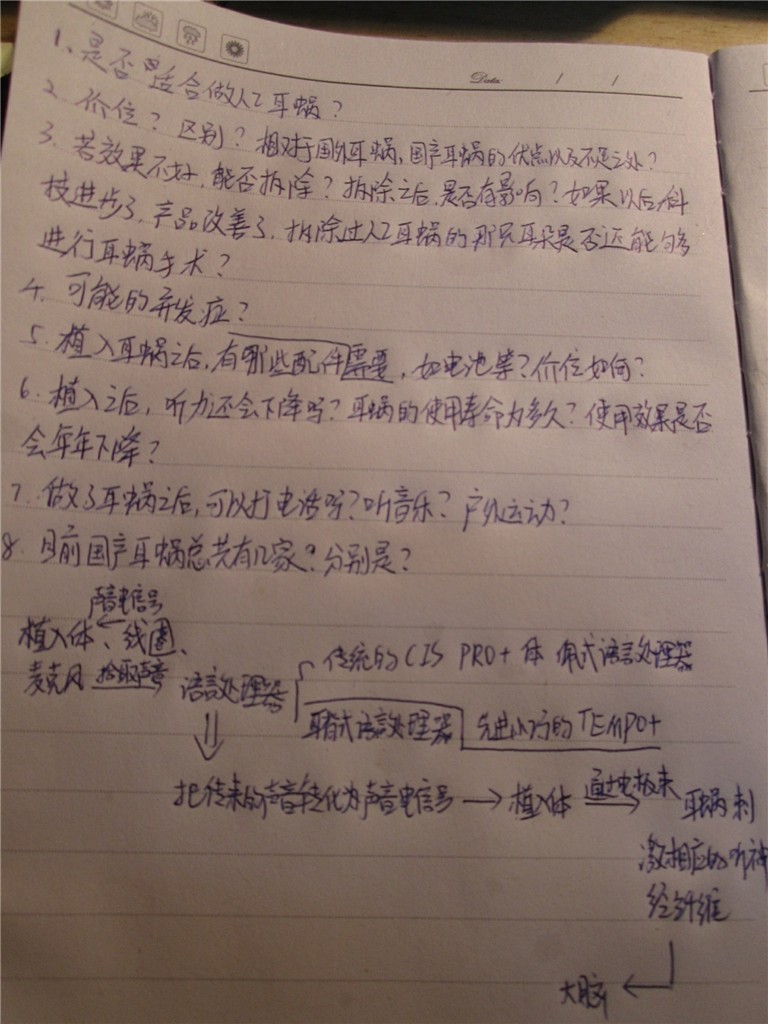 Date / /
1、是否适合做人工耳蜗？
2、价位？区别？相对于国外耳蜗，国产耳蜗的优点以及不足之处？
3、若效果不好，能否拆除？拆除之后，是否有影响？如果以后科
技进步了，产品改善了，拆除过人工耳蜗的那只耳朵是否还能够
进行耳蜗手术？
4、可能的并发症？
5、植入耳蜗之后，有哪些配件需要，如电池等？价位如何？
6、植入之后，听力还会下降吗？耳蜗的使用寿命为多久？使用效果是否
会年年下降？
7、做了耳蜗之后，可以打电话吗？听音乐？户外运动？
8、目前国产耳蜗总共有几家？分别是？
声音电信号
植入体、线圈、
麦克风 拾取声音 语言处理器
传统的CIS PRO+体佩式语言处理器
耳背式语言处理器 先进小巧的TEMPO+
把传来的声音转化为声音电信号 → 植入体 通过电极束 耳蜗刺
激相应的听神
经纤维
大脑